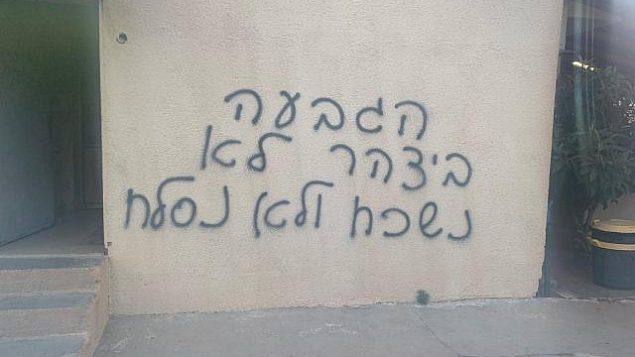 הגבעה
ביצהר לא
נשכח ולא נסלח